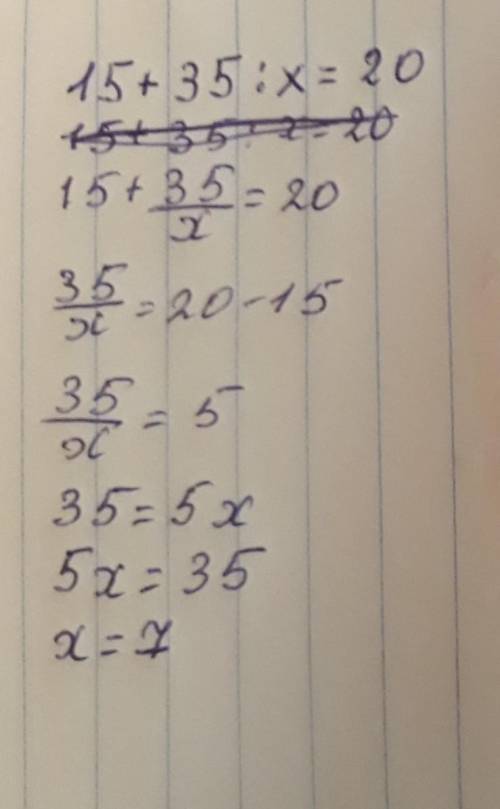 15+ 35 : x = 20
15+ 35 : x = 20
15 + 35/x = 20
35/x = 20 - 15
35/x = 5
35 = 5x
5x = 35
x = 7